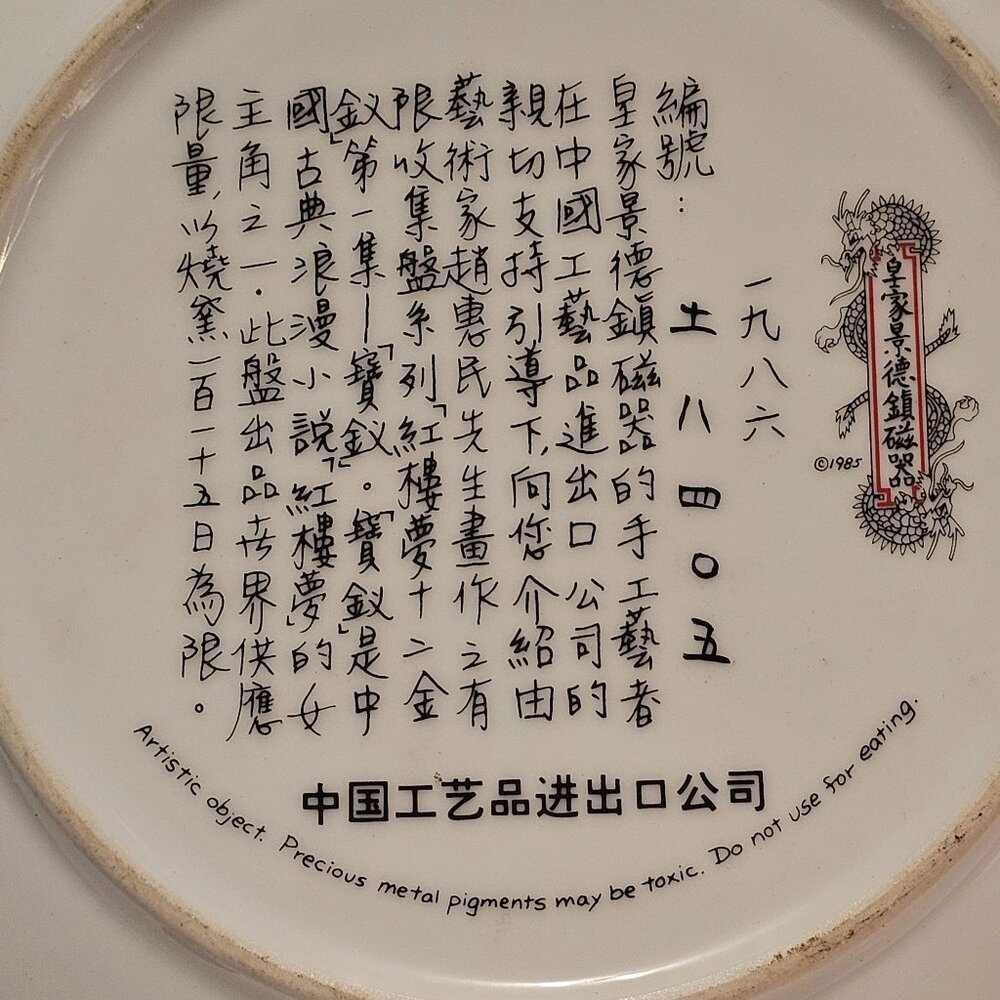 皇家景德鎮磁器
©1985
一九八六
編號：土八四〇五
皇家景德鎮磁器的手工藝者
在中國工藝品進出口公司的
親切支持引導下,向您介紹由
藝術家趙惠民先生畫作之有
限收集盤系列「紅樓夢十二金
釵」第一集—「寶釵」。「寶釵」是中
國古典浪漫小說「紅樓夢」的女
主角之一.此盤出品世界供應
限量,以燒窯一百一十五日為限。
中国工艺品进出口公司
Artistic object. Precious metal pigments may be toxic. Do not use for eating.